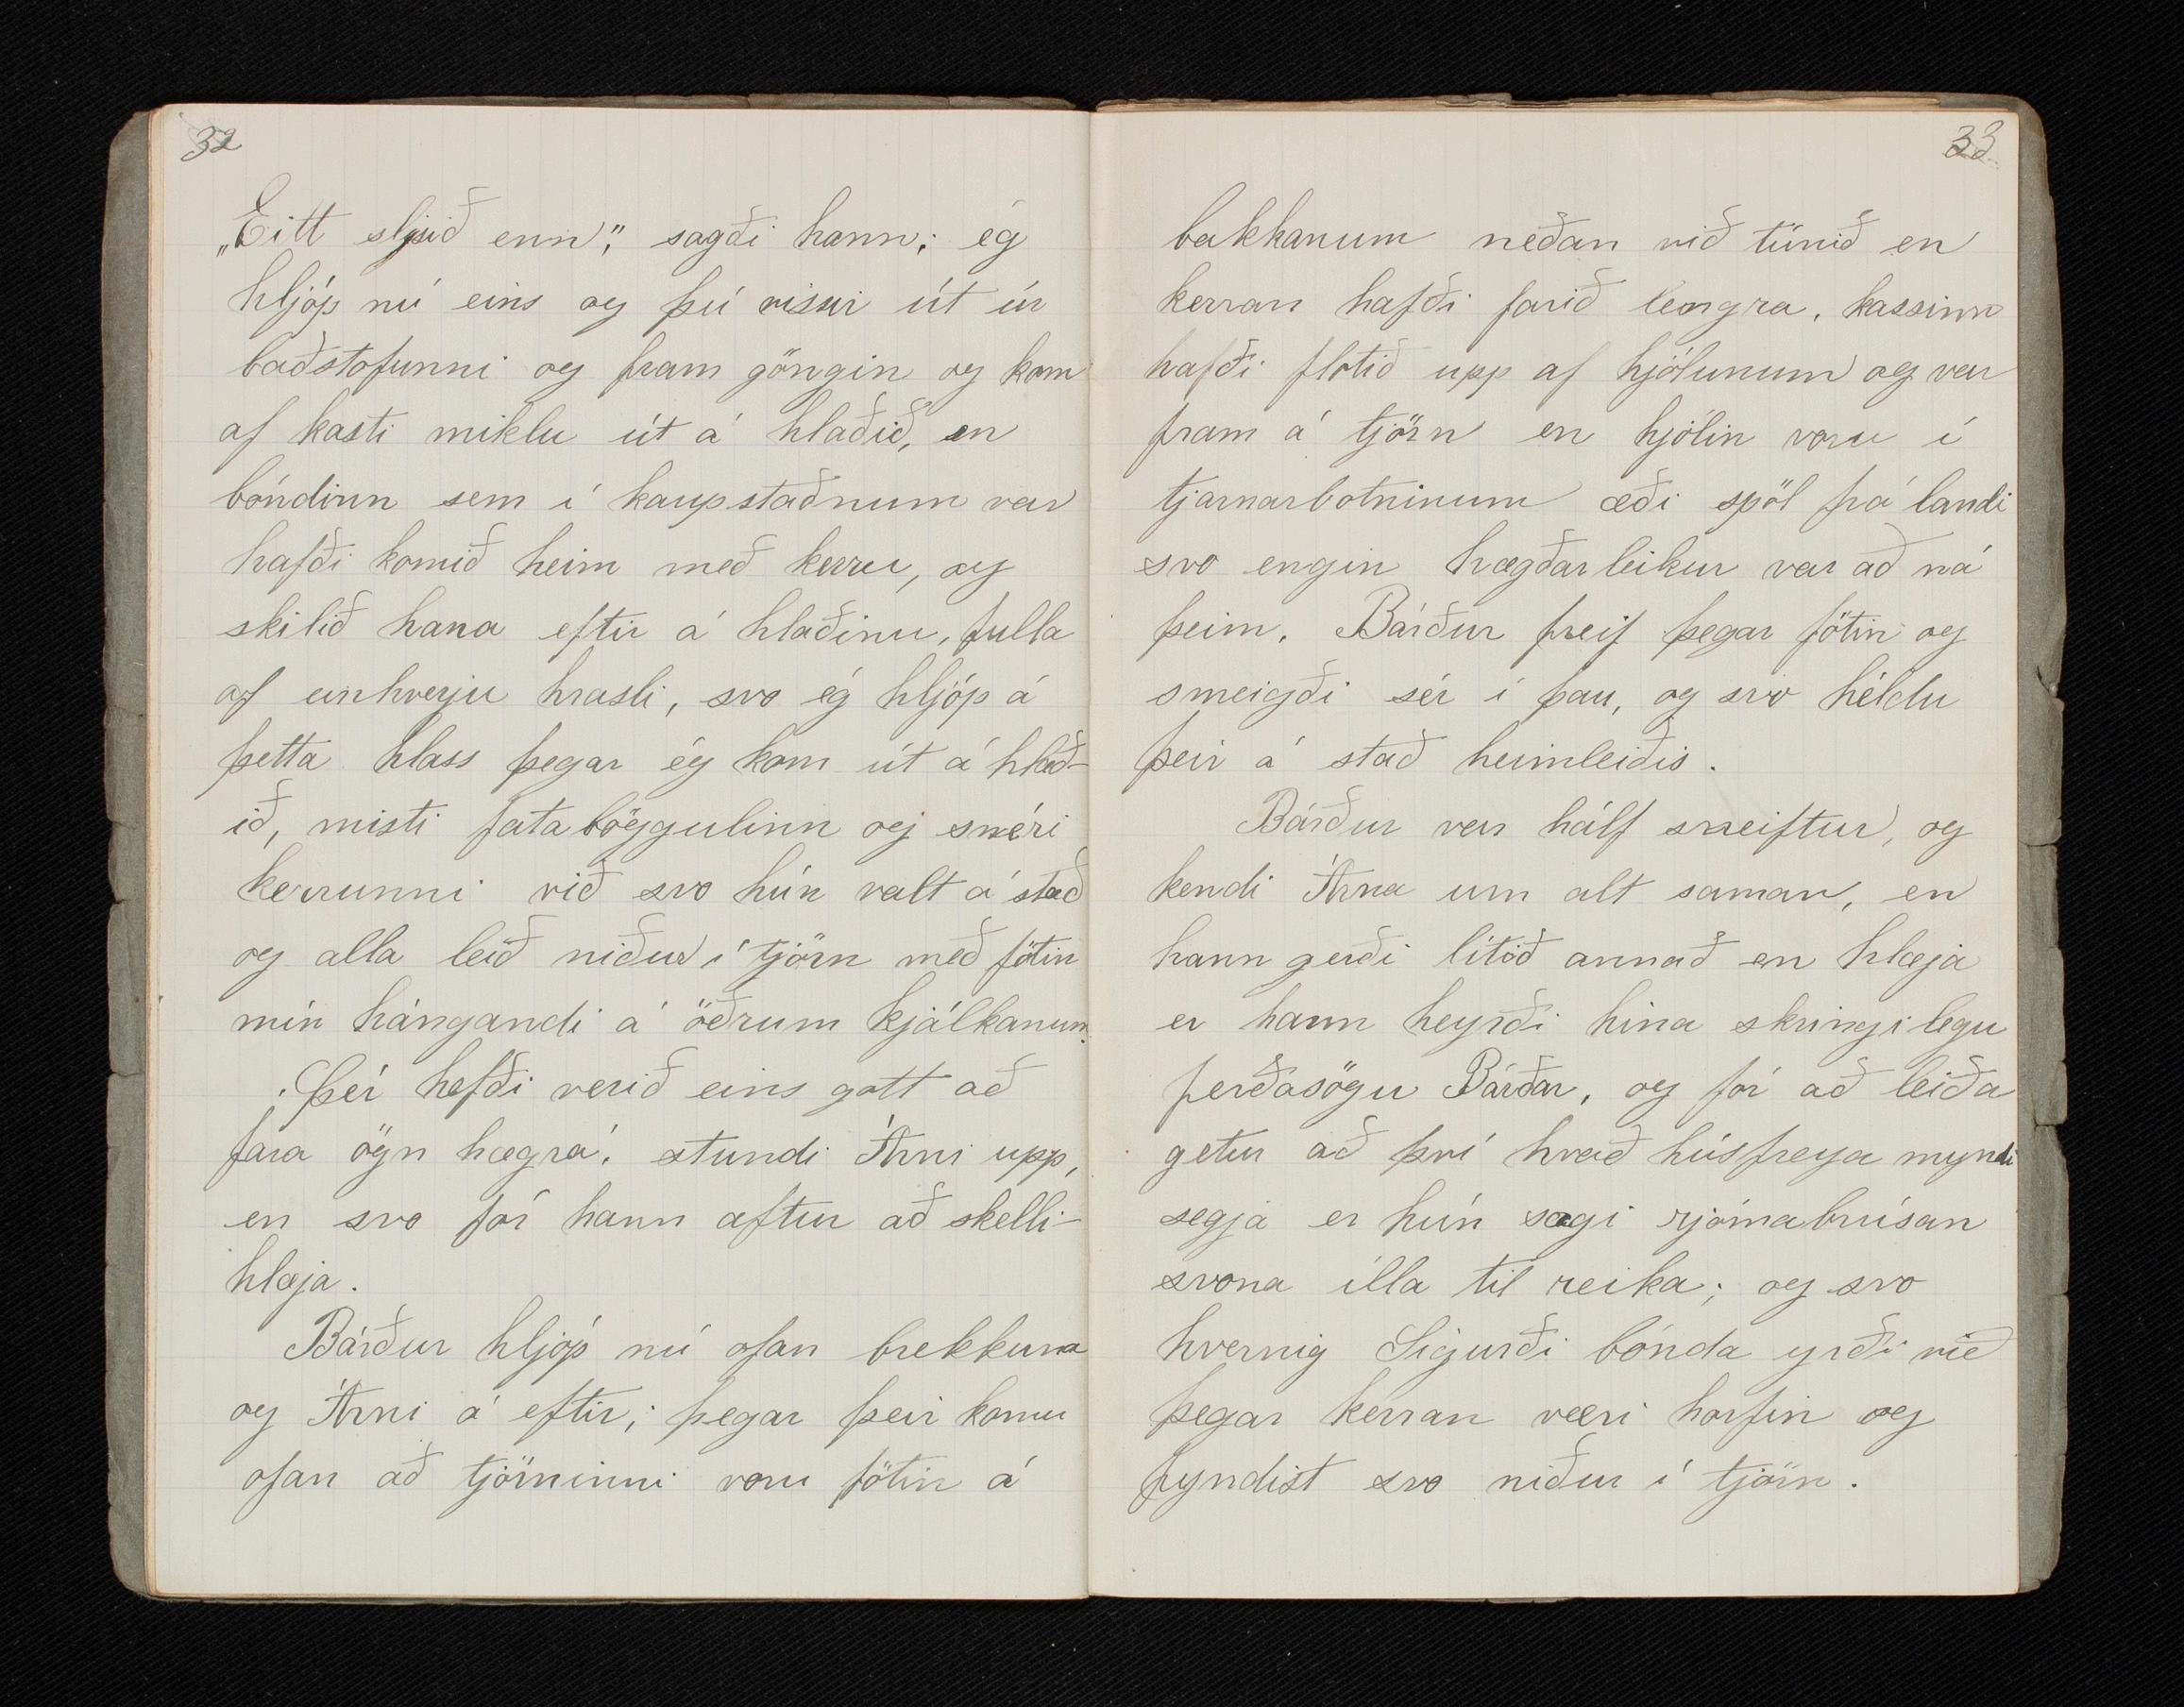 32
„Eitt slysið enn", sagði hann; ég
hljóp nú eins og þú vissir út úr
baðstofunni og fram göngin og kom
af kasti miklu út á hlaðið, en
bóndinn sem í kaupstaðnum var
hafði komið heim með kerru, og
skilið hana eftir á hlaðinu, fulla
af einhverju hrasli, svo ég hljóp á
þetta hlass þegar ég kom út á hlað-
ið, misti fataböggulinn og snéri
kerrunni við svo hún valt á stað
og alla leið niður í tjörn með fötin
mín hángandi á öðrum kjálkanum.
„Þér hefði verið eins gott að
fara ögn hægra", stundi Árni upp,
en svo fór hann aftur að skelli-
hlæja.
Bárður hljóp nú ofan brekkuna
og Árni á eftir; þegar þeir komu
ofan að tjörninni voru fötin á
33
bakkanum neðan við túnið en
kerran hafði farið lengra, kassinn
hafði flotið upp af hjólunum og var
fram á tjörn en hjólin voru í
tjarnarbotninum æði spöl frá landi
svo engin hægðarleikur var að ná
þeim. Bárður þreif þegar fötin og
smeigði sér í þau, og svo héldu
þeir á stað heimleiðis.
Bárður var hálf sneiftur, og
kendi Árna um alt saman, en
hann gerði lítið annað en hlæja
er hann heyrði hina skringilegu
ferðasögu Bárðar, og fór að leiða
getur að því hvað húsfreya myndi
segja er hún sægi rjómabrúsan
svona illa til reika; og svo
hvernig Sigurði bónda yrði við
þegar kerran væri horfin og
fyndist svo niður í tjörn.